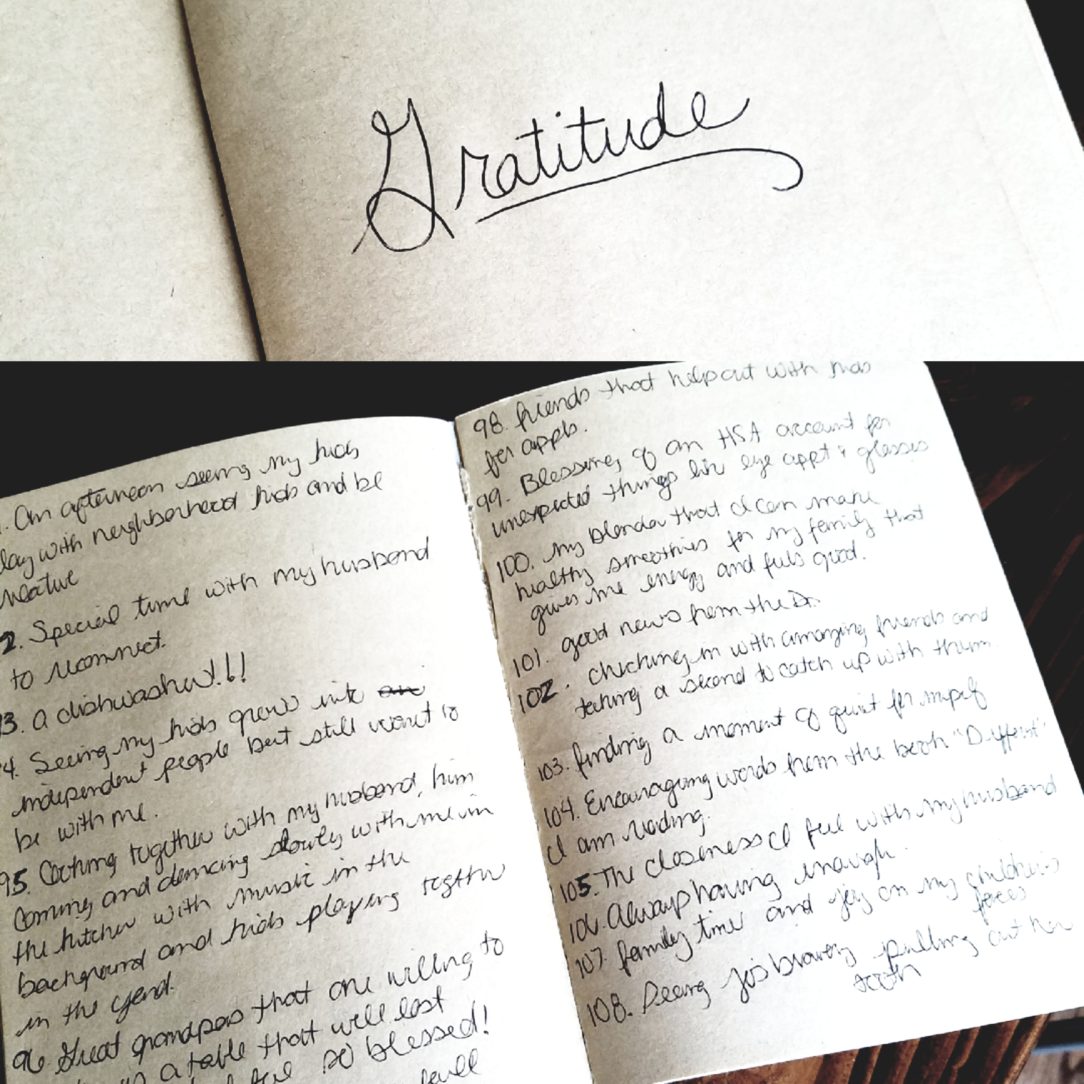 Gratitude
1. An afternoon seeing my kids
lay with neighborhood kids and be
creative
2. Special time with my husband
to reconnect.
93. a dishwasher!!!
94. Seeing my kids grow into an
independent people but still want to
be with me.
95. Cooking together with my husband, him
coming and dancing slowly with me in
the kitchen with music in the
background and kids playing together
in the yard.
96 Great grandpas that are willing to
a table that will last
so blessed!
98. friends that help out with kids
for appts.
99. Blessing of an HSA account for
unexpected things like eye appt & glasses
100. my blender that I can make
healthy smoothies for my family that
gives me energy and fuels good.
101. good news from the Dr.
102. checking in with amazing friends and
taking a second to catch up with them
103. finding a moment of quiet for myself
104. Encouraging words from the book "Different"
I am reading.
105. The closeness I feel with my husband
106. Always having enough.
107. family time and joy on my children's
faces
108. Seeing bravery pulling out her
tooth